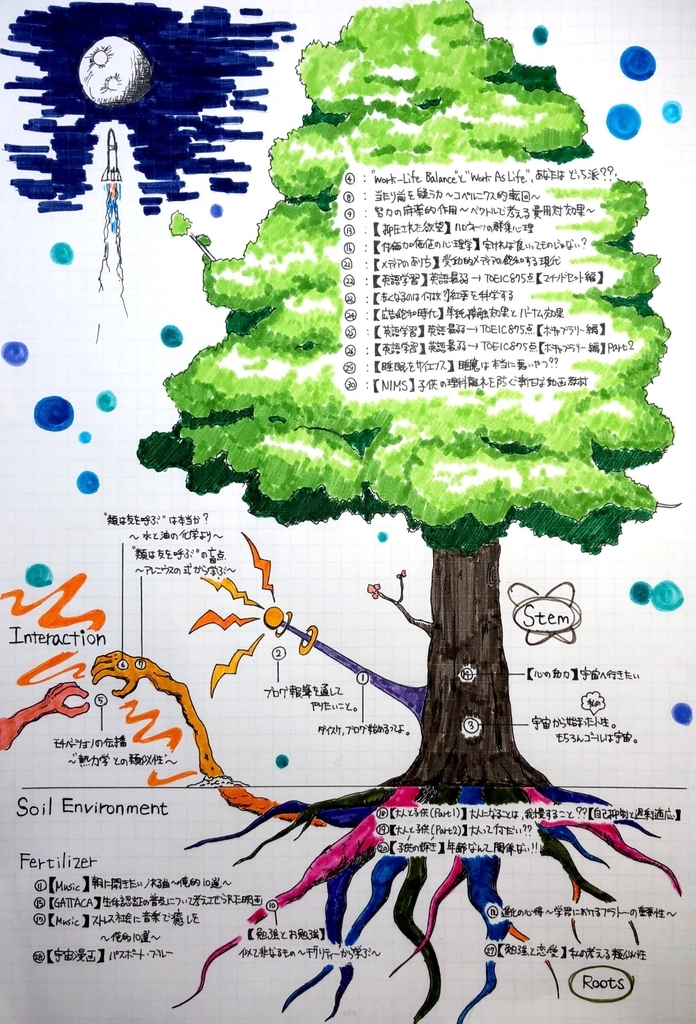 ④ : "Work-Life Balance"と"Work As Life", あなたはどっち派??
⑧ : 当たり前を疑う力〜コペルニクス的転回〜
⑨ : 努力の麻薬的作用〜ベクトルで考える費用対効果〜
⑬ : 【抑圧された欲望】ハロウィーンの群集心理
⑯ : 【付加価値の心理学】安ければ良いってものじゃない?
㉑ : 【メディアのあり方】受動的メディアの飽和する現代
㉒ : 【英語学習】英語最弱→TOEIC875点【マインドセット編】
㉓ : 赤くなるのは何故?紅葉を科学する
㉔ : 【広告飽和時代】単純接触効果とバーナム効果
㉕ : 【英語学習】英語最弱→TOEIC875点【ボキャブラリー編】
㉖ : 【英語学習】英語最弱→TOEIC875点【ボキャブラリー編】Part2
㉙ : 【睡眠をサイエンス】睡魔は本当に悪いやつ??
㉚ : 【NIMS】子供の理科離れを防ぐ斬新な動画教材
"類は友を呼ぶ"は本当か?
〜水と油の化学より〜
"類は友を呼ぶ"の盲点
〜アレニウスの式から学ぶ〜
Interaction
⑥ ⑦
⑤
モチベーションの伝播
〜"熱力学"との類似性〜
②
ブログ執筆を通して
やりたいこと。
①
ダイスケ、ブログ始めるってよ。
Stem
【心の動力】宇宙へ行きたい
③
私の
宇宙から始まった人生。
もちろんゴールは宇宙。
Soil Environment
⑱【大人と子供(Part1)】大人になることは、我慢すること??【自己抑制と過剰適応】
⑲【大人と子供(Part2)】大人って何だい??
⑳【子供の輝き】年齢なんて関係ない!!
Fertilizer
⑪【Music】朝に聞きたいノれる曲〜俺的10選〜
⑮【GATTACA】生体認証の普及について考えさせられる映画
⑰【Music】ストレス社会に音楽で癒しを
〜俺的10選〜
㉘【宇宙漫画】パスポート・ブルー
⑩
【勉強とお勉強】
似て非なるもの〜モチリティーから学ぶ〜
⑫ 進化の心得〜学習におけるプラトーの重要性〜
㉗【勉強と恋愛】私の考える類似性
Roots